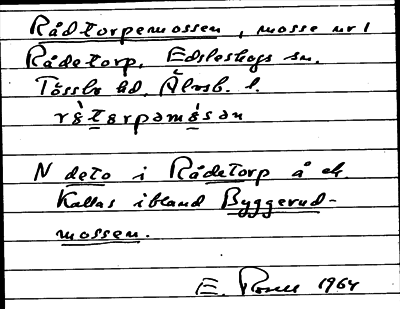 Rådtorpemossen, mosse nr 1
Rådetorp, Edsleskogs sn.
Tössbo hd, Älvsb. l.
N deto i Rådetorp å ek.
Kallas ibland Byggerud-
mossen.
E. 1964